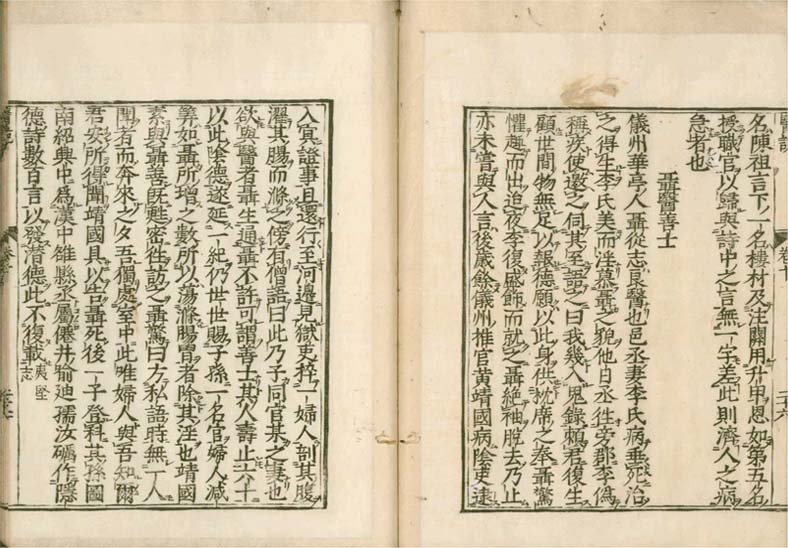 名陳祖言下一名樓材及注闕用升甲恩如第五名
授職官以歸與詩中之言無一字差此則濟人之病
急者也
聶醫善士
儀州華亭人聶從志良醫也邑丞妻李氏病垂死治
之得生李氏美而淫慕聶之貌他日丞往旁郡李偽
稱疾使邀之伺其至語之曰我幾入鬼錄賴君復生
顧世間物無足以報德願以此身供枕席之奉聶驚
懼趨而出迨夜李復盛飾而就之聶絕袖脫去乃止
亦未嘗與人言後歲餘儀州推官黃靖國病陰吏逮
入冥證事且還行至河邊見獄吏捽一婦人剖其腹
濯其腸而滌之傍有僧語曰此乃子同官某之妻也
欲與醫者聶生通聶不許可謂善士其人壽止六十
以此陰德遂延一紀仍世世賜子孫一名官婦人減
筭如聶所增之數所以蕩滌腸胃者除其淫也靖國
素與聶善既甦密往訪之聶驚曰方私語時無一人
聞者而奔來之夕吾獨處室中此唯婦人與吾知爾
君安所得聞靖國具以告聶死後一子登科其孫國
南紹興中為漢中雒縣丞屬僊井喻迪孺汝礪作隱
德詩數百言以發潛德此不復載 夷堅志